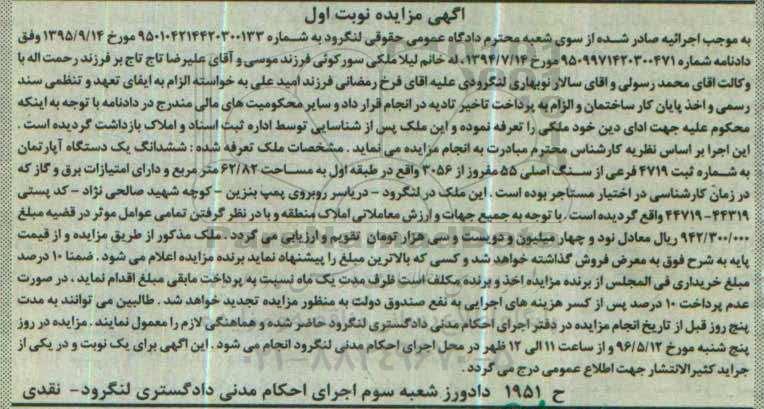 آگهی مزایده نوبت اول
به موجب اجرائیه صادر شده از سوی شعبه محترم دادگاه عمومی حقوقی لنگرود به شماره ۹۵۰۱۰۴۲۱۴۴۲۰۳۰۰۱۳۳ مورخ ۱۳۹۵/۹/۱۴ وفق
دادنامه شماره ۹۵۰۹۹۷۱۴۲۰۳۰۰۴۷۱ مورخ ۱۳۹۴/۷/۱۴، له خانم لیلا ملکی سورکوئی فرزند موسی و آقای علیرضا تاج تاج بر فرزند رحمت اله با
وکالت اقای محمد رسولی و اقای سالار نوبهاری لنگرودی علیه اقای فرخ رمضانی فرزند امید علی به خواسته الزام به ایفای تعهد و تنظیمی سند
رسمی و اخذ پایان کار ساختمان و الزام به پرداخت تاخیر تادیه در انجام قرار داد و سایر محکومیت های مالی مندرج در دادنامه با توجه به اینکه
محکوم علیه جهت ادای دین خود ملکی را تعرفه نموده و این ملک پس از شناسایی توسط اداره ثبت اسناد و املاک بازداشت گردیده است .
این اجرا بر اساس نظریه کارشناس محترم مبادرت به انجام مزایده می نماید . مشخصات ملک تعرفه شده : ششدانگ یک دستگاه آپارتمان
به شماره ثبت ۴۷۱۹ فرعی از سنگ اصلی ۵۵ مفروز از ۳۰۵۶ واقع در طبقه اول به مساحت ۶۲/۸۲ متر مربع و دارای امتیازات برق و گاز که
در زمان کارشناسی در اختیار مستاجر بوده است . این ملک در لنگرود - دریاسر روبروی پمپ بنزین - کوچه شهید صالحی نژاد - کد پستی
۴۴۳۱۹-۴۴۷۱۹ واقع گردیده است . با توجه به جمیع جهات و ارزش معاملاتی املاک منطقه و با در نظر گرفتن تمامی عوامل موثر در قضیه مبلغ
۹۴۲/۳۰۰/۰۰۰ ریال معادل نود و چهار میلیون و دویست و سی هزار تومان تقویم و ارزیابی می گردد . ملک مذکور از طریق مزایده و از قیمت
پایه به شرح فوق به معرض فروش گذاشته خواهد شد و کسی که بالاترین مبلغ را پیشنهاد نماید برنده مزایده اعلام می شود . ضمنا ۱۰ درصد
مبلغ خریداری فی المجلس از برنده مزایده اخذ و برنده مکلف است ظرف مدت یک ماه نسبت به پرداخت مابقی مبلغ اقدام نماید ، در صورت
عدم پرداخت ۱۰ درصد پس از کسر هزینه های اجرایی به نفع صندوق دولت به منظور مزایده تجدید خواهد شد . طالبین می توانند به مدت
پنج روز قبل از تاریخ انجام مزایده در دفتر اجرای احکام مدنی دادگستری لنگرود حاضر شده و هماهنگی لازم را معمول نمایند . مزایده در روز
پنج شنبه مورخ ۹۶/۵/۱۲ و از ساعت ۱۱ الی ۱۲ ظهر در محل اجرای احکام مدنی لنگرود انجام می شود . این آگهی برای یک نوبت و در یکی از
جراید کثیرالانتشار جهت اطلاع عمومی درج می گردد .
ح ۱۹۵۱ دادورز شعبه سوم اجرای احکام مدنی دادگستری لنگرود- نقدی